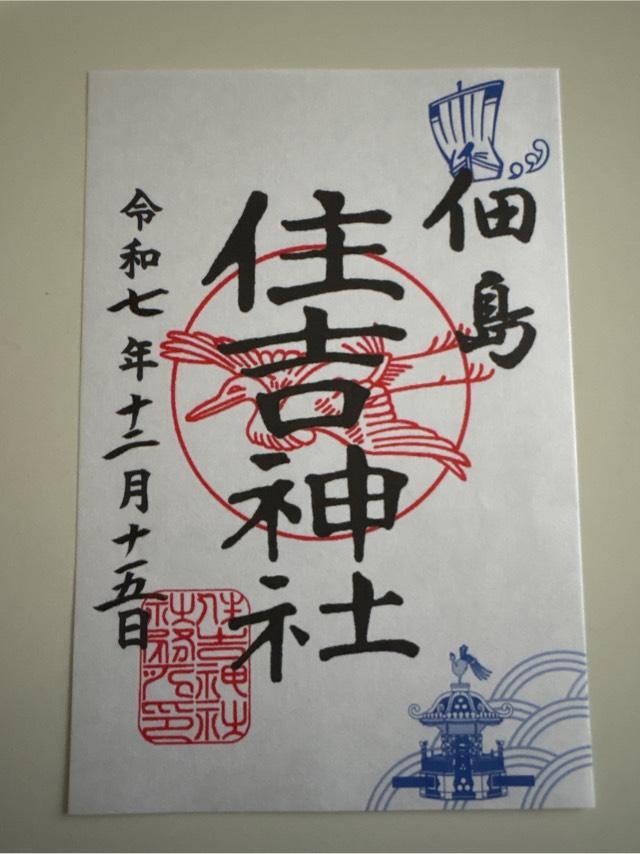 佃島
住吉神社
令和七年十二月十五日
住吉神社
社務所印